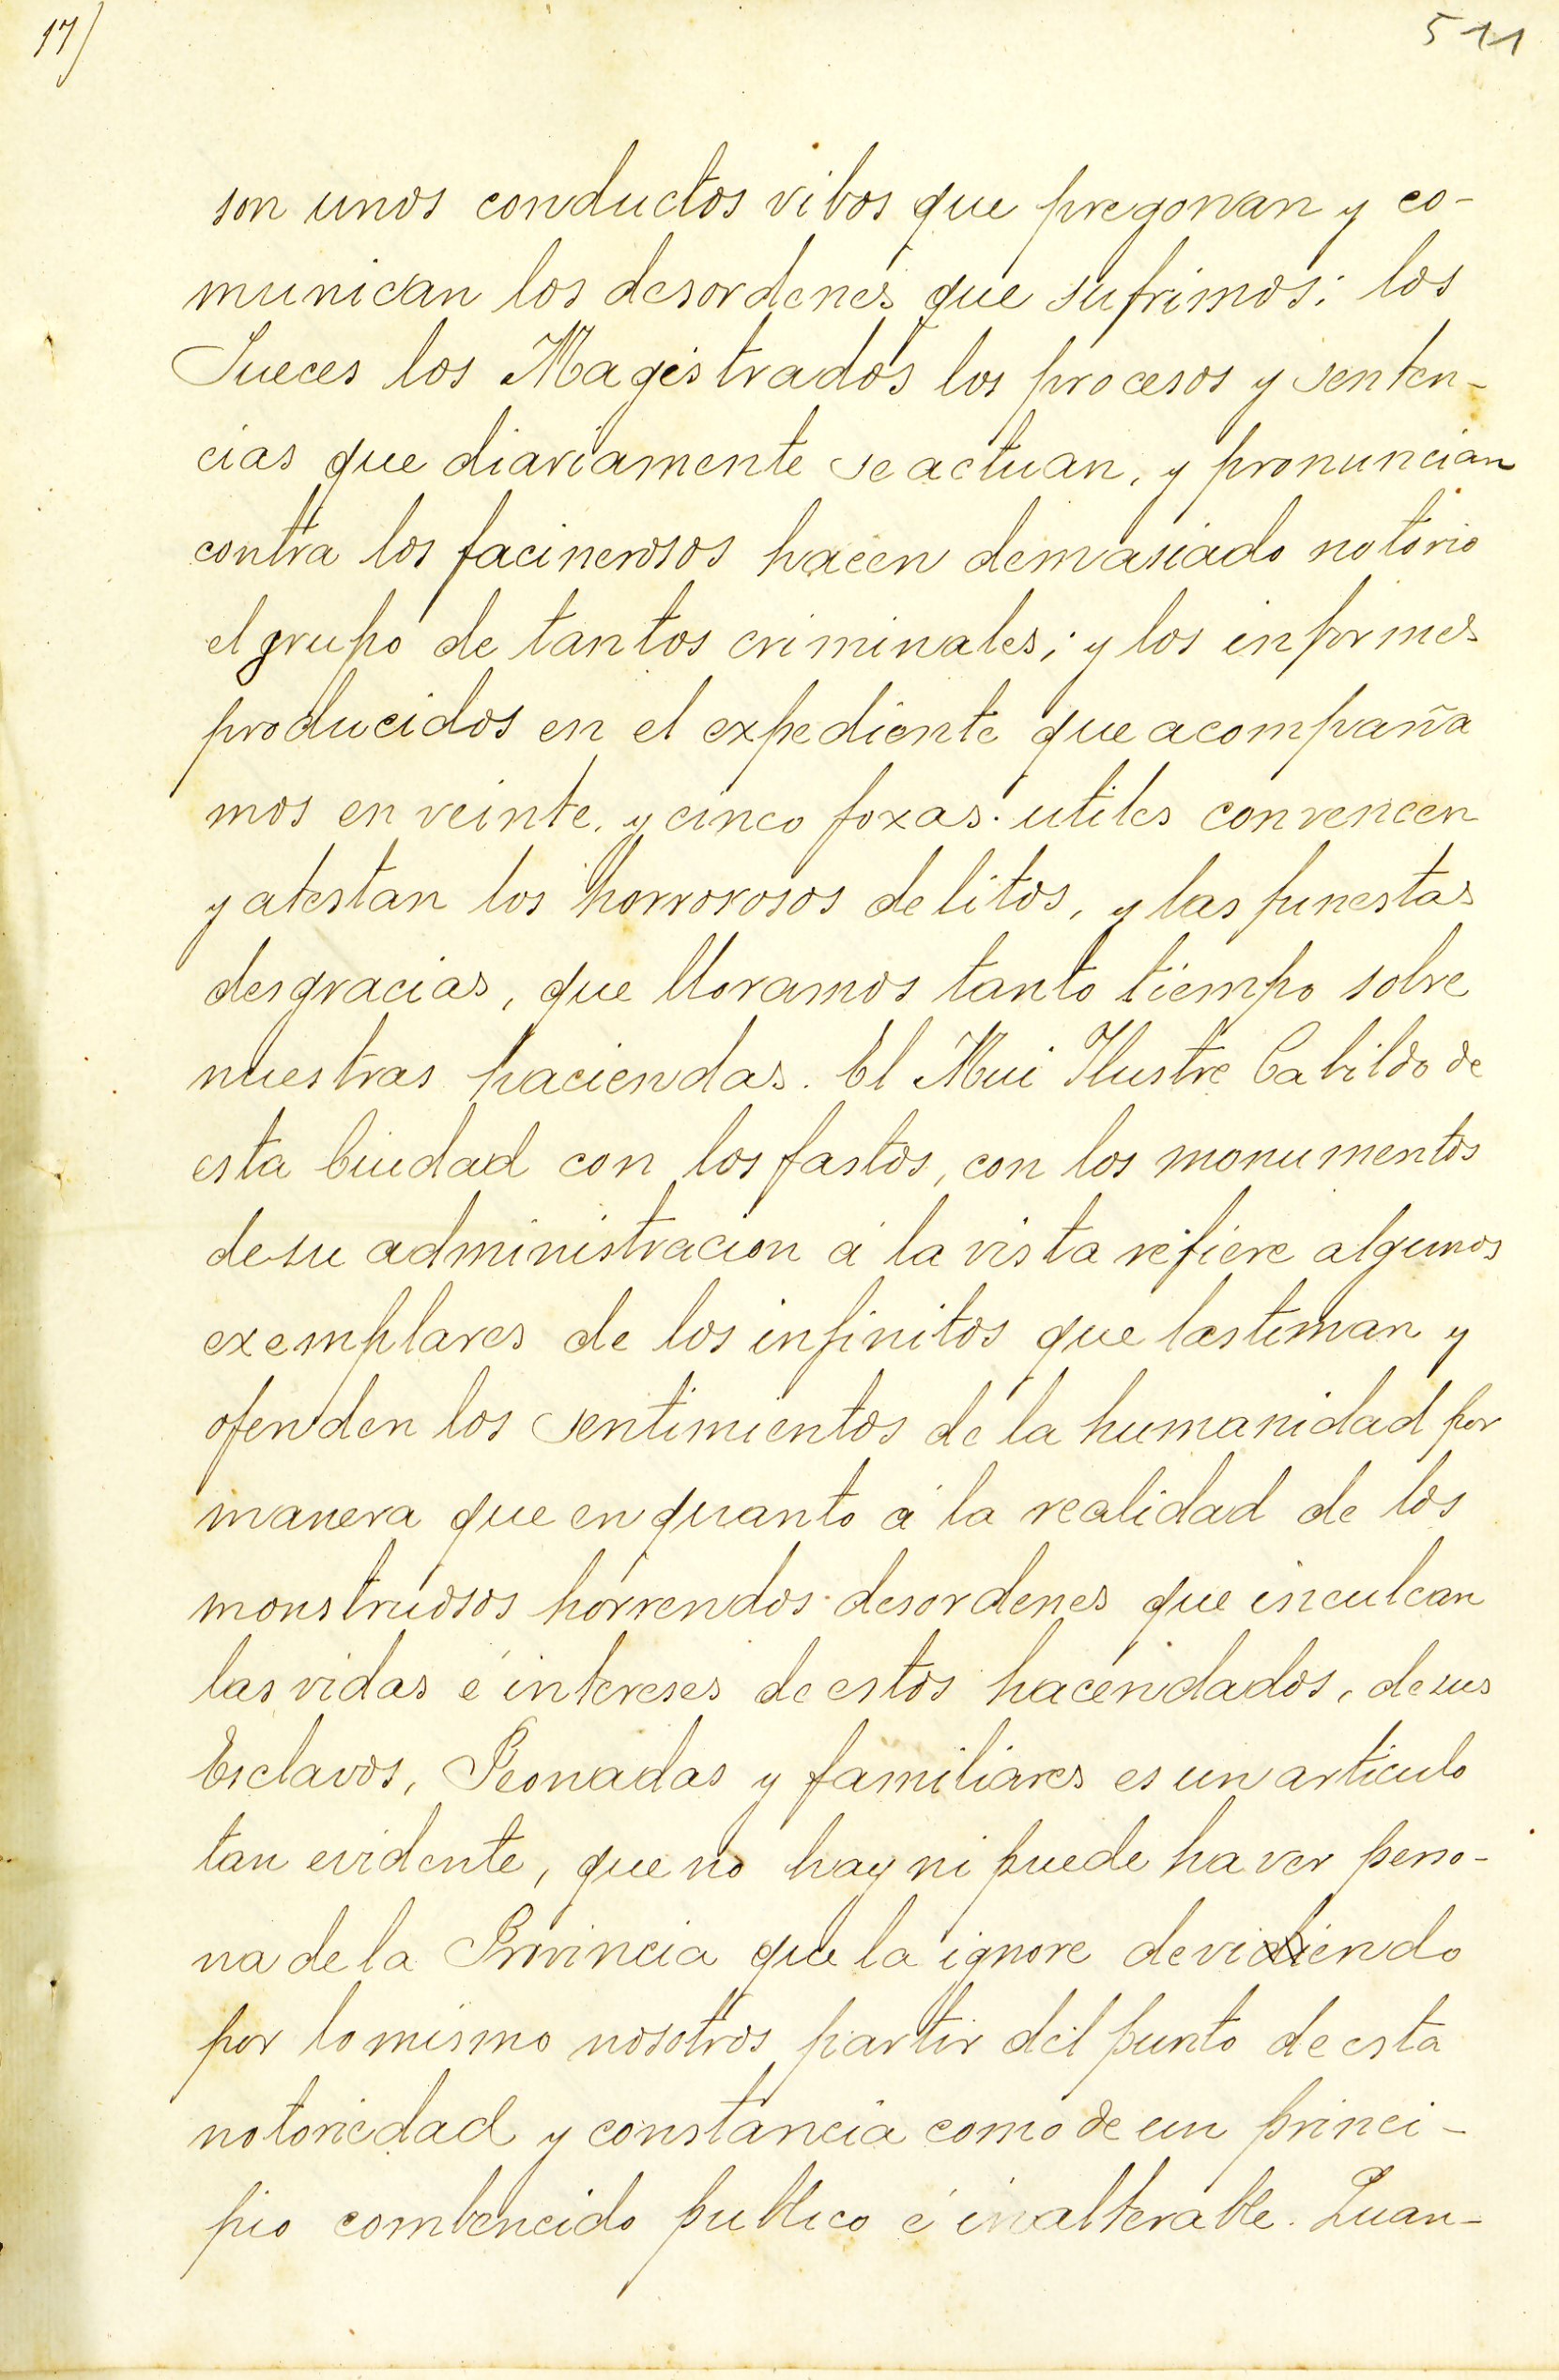 17)
511
son unos conductos vibos que pregonan y co-
munican los desordenes que sufrimos: los
Jueces los Magistrados los procesos y senten-
cias que diariamente se actuan, y pronuncian
contra los facinerosos hacen demasiado notorio
el grupo de tantos criminales; y los informes
producidos en el expediente que acompaña
mos en veinte, y cinco foxas utiles convencen
y atestan los horrorosos delitos, y las funestas
desgracias, que lloramos tanto tiempo sobre
nuestras haciendas. El Mui Ilustre Cabildo de
esta Ciudad con los fastos, con los monumentos
de su administracion á la vista refiere algunos
exemplares de los infinitos que lastiman y
ofenden los sentimientos de la humanidad por
manera que en quanto á la realidad de los
monstruosos horrendos desordenes que inculcan
las vidas é intereses de estos hacendados, de sus
Esclavos, Peonadas y familiares es un articulo
tan evidente, que no hay ni puede haver perso-
na de la Provincia que la ignore devidiendo
por lo mismo nosotros partir del punto de esta
notoriedad y constancia como de un princi-
pio combencido publico é inalterable. Quan-